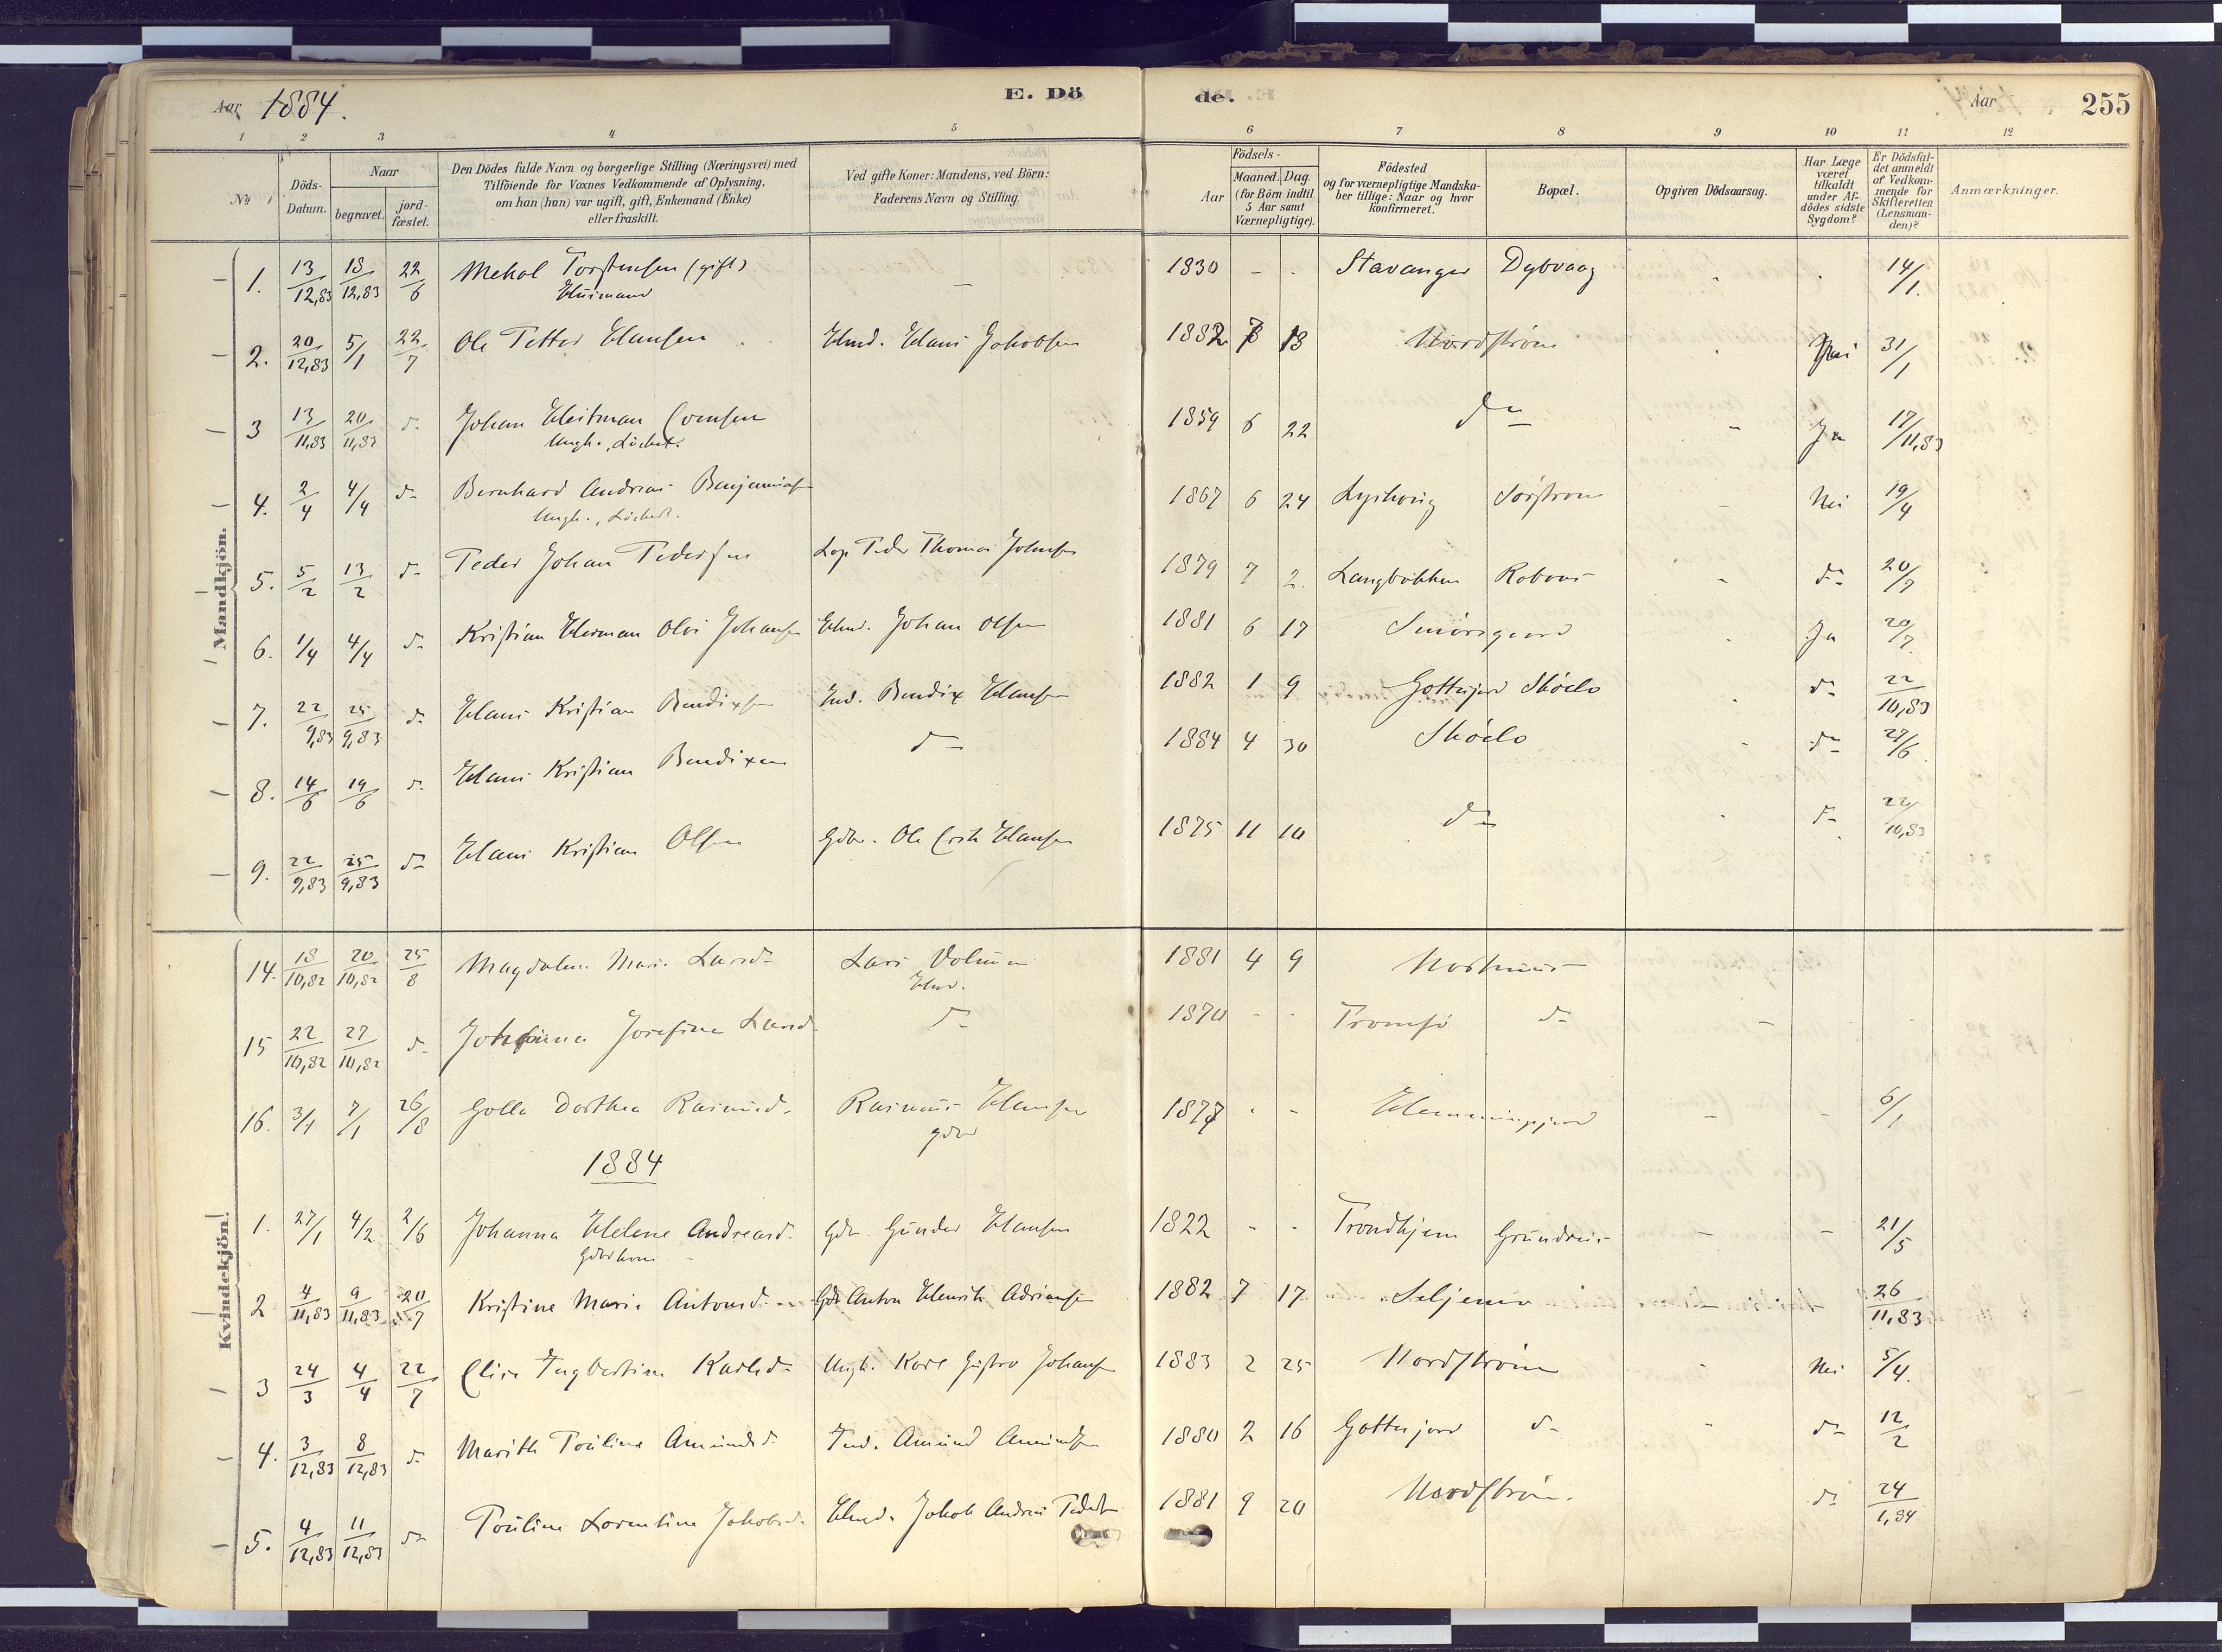 Aar 1884. E. Dö de. Aar 255
1 2 3 4 5 6 7 8 9 10 11 12
№ Döds-Datum. Naar begravet. jord-fæstet. Den Dödes fulde Navn og borgerlige Stilling (Næringsvei) med Tilföiende for Voxnes Vedkommende af Oplysning, om han (hun) var ugift, gift, Enkemand (Enke) eller fraskilt. Ved gifte Koner: Mandens, ved Börn: Faderens Navn og Stilling. Födsels- Aar Maaned. Dag. (for Börn indtil 5 Aar samt Værnepligtige). Födested og for værnepligtige Mandska-ber tillige: Naar og hvor Konfirmeret. Bopæl. Opgiven Dödsaarsag. Har Læge været tilkaldt under Af-dödes sidste Sygdom? Er Dödsfal-det anmeldt af Vedkom-mende for Skifteretten (Lensman-den)? Anmærkninger.
Mandkjön.
1. 13/12,83 18/12,83 22/6 Mekal Torstensen (gift) - 1830 - - Stavanger Dybvaag - - 14/1.
Huusmand
2. 20/12,83 5/1 22/7 Ole Petter Hansen Husmd. Hans Jakobsen 1882 7 13 Nordstrøm - Nei 31/1
3 13/11,83 20/11,83 d- Johan Heitman 1859 6 22 do - Ja 17/11,83
Ungk.
4. 2/4 4/4 d- Bernhard Andreas Benjaminsen 1867 6 24 Sørstrøm - Nei 19/4
Ungk.
5. 5/2 13/2 d- Peder Johan Pedersen Peder Thomas Johnsen 1879 7 2. - do 20/7
6. 1/4 4/4 d- Kristian Herman Olai Johansen Husmd. Johan Olsen 1881 6 17 - Ja 20/7.
7. 22/9,83 25/9,83 d- Hans Kristian Bendixsen Ind. Bendix Hansen 1882 1 9 Gottesjord Sköelv - do 22/10,83
8. 14/6 19/6 d- Hans Kristian Bendixen do 1884 4 30 Sköelv - do 27/6
9. 22/9,83 25/9,83 do Hans Kristian Olsen Gdbr. Ole Erik Hansen 1875 11 10 do - d- 22/10,83
Kvindekjön!
14. 18/10,82 20/10,82 25/8 Magdalene Marie Larsd- Lars 1881 4 9
15 22/10,82 27/10,82 d- Josefine Larsd- do 1870 - - Tromsö do - -
16. 3/1 7/1 26/8 Golla Dorthea Rasmusd. Rasmus Hansen 1877 - - - - 6/1
gdbr
1884
1. 27/1 4/2 2/6 Johanna Helene Andreasd. Gdbr. Gunder Hansen 1822 - - Trondhjem Grundreis - - 21/5
Gdbrkone
2 4/11,83 9/11,83 20/7 Kristine Marie Antonsd. Gdbr Anton Henrik Adriansen 1882 7 17 - - 26/11,83
3 24/3 4/4 22/7 Elise Ingbertine Karlsd- Ungk. Karl Gustav Johansen 1883 2 25 Nordstrøm - Nei 5/4.
4. 3/12,83 8/12,83 d- Marith Pouline Amundsd. Ind. Amund Amundsen 1880 2 16 Gottesjord do - do 12/2
5. 4/12,83 11/12,83 do Pouline Lorentine Jakobsd. Husmd. Jakob Andreas 1881 9 20 Nordstrøm. do 24/1,84